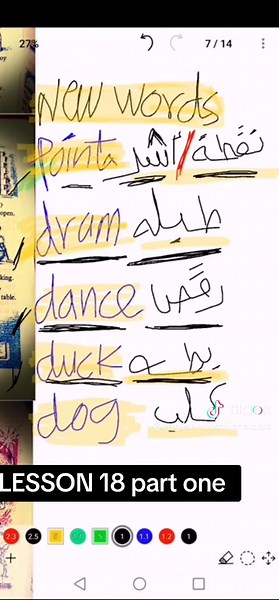 27%
7 / 14
New words
open,
king.
table.
pointa أشر / نقطة
dram طبله
dance رقص
duck بطه
dog كلب
LESSON 18 part one
2.3 2.5 1 1.1 1.2 1